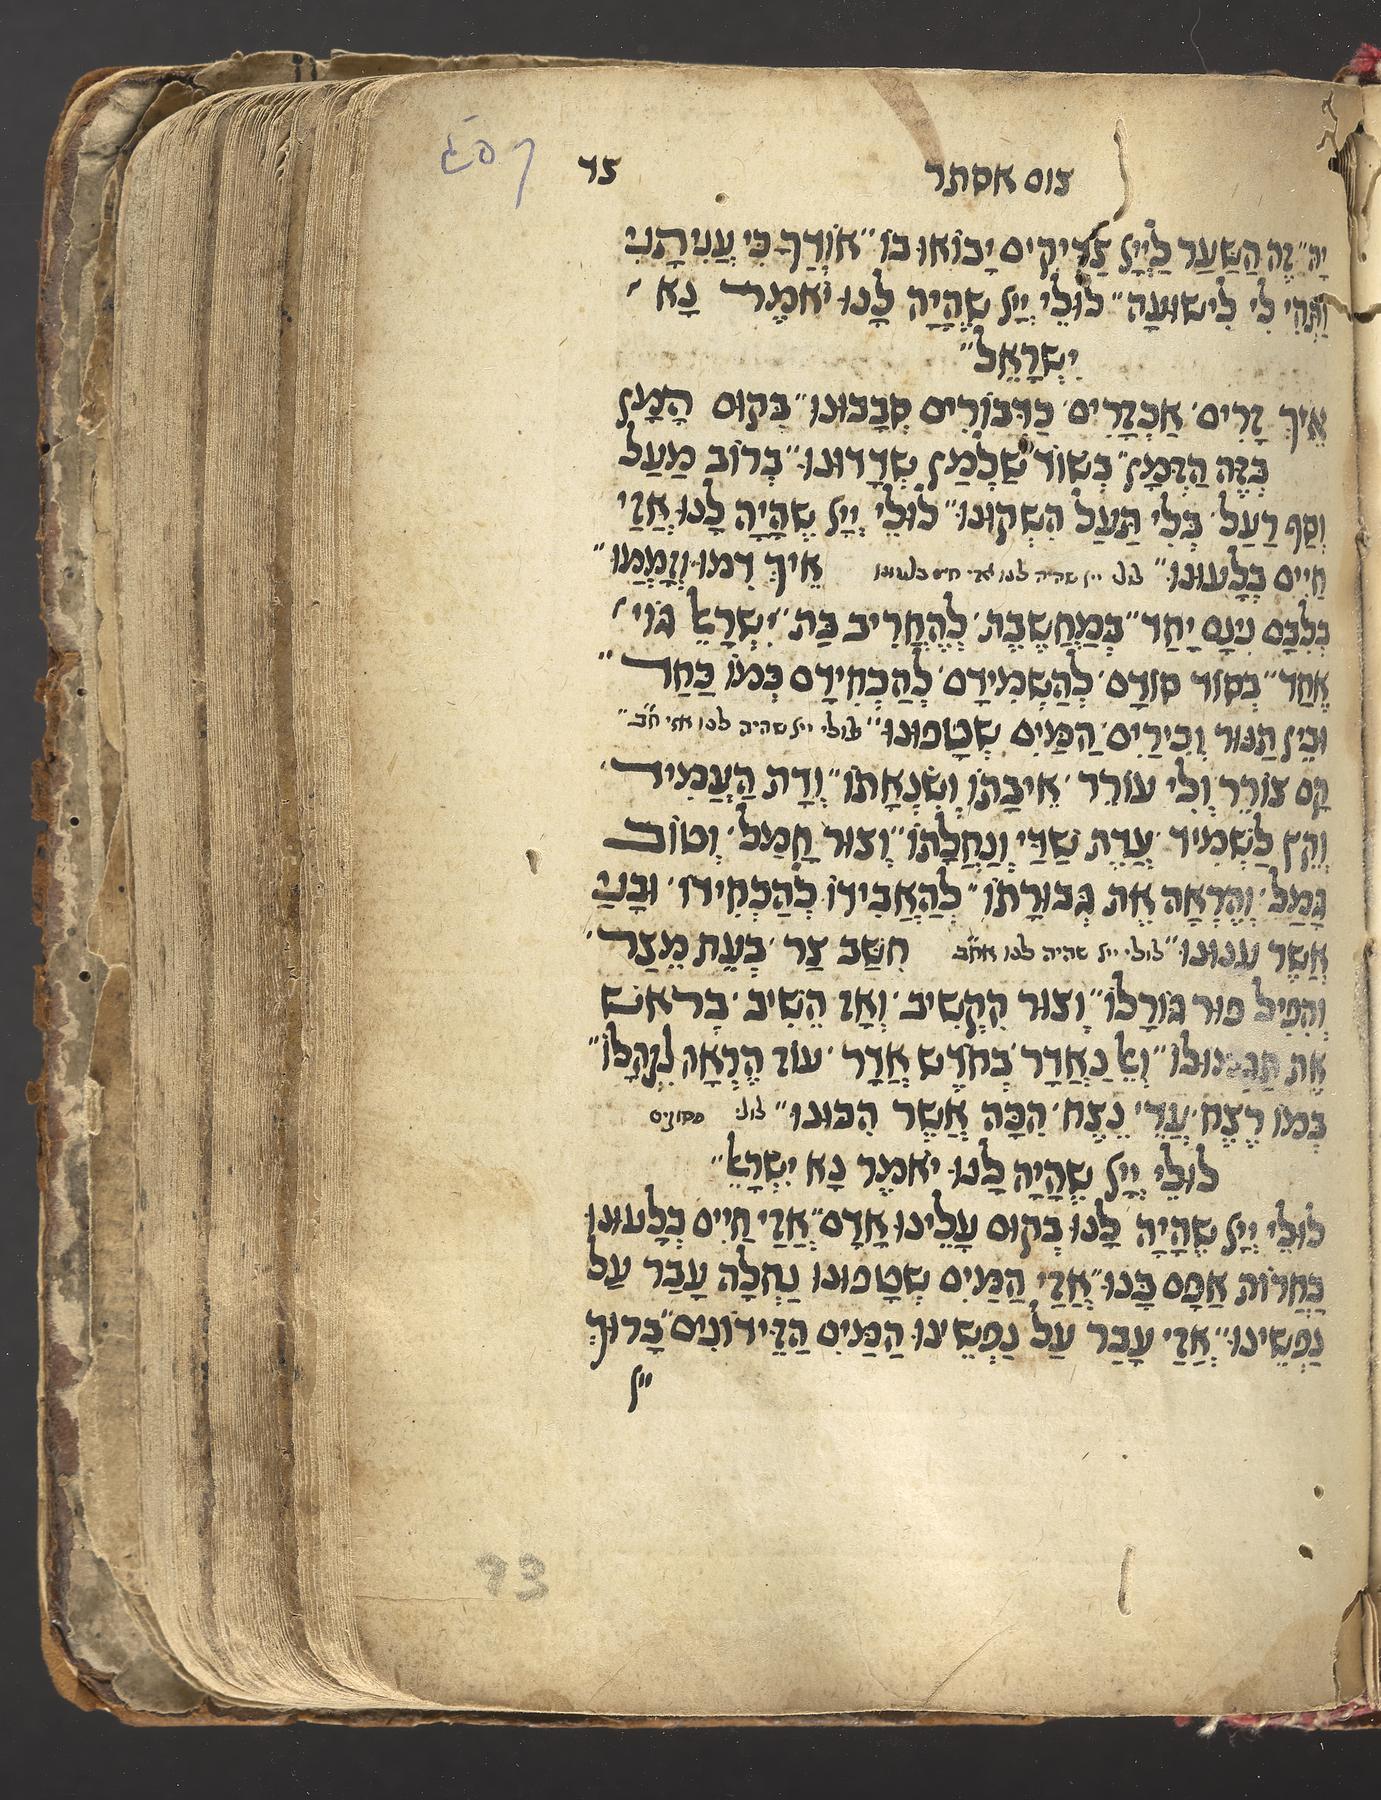 צום אסתר צד
יָהּ״ זֶה הַשַּׁעַר לַייָ צַדִּיקִים יָבוֹאוּ בוֹ״ אוֹדְךָ כִּי עֲנִיתָנִי
וַתְּהִי לִי לִישׁוּעָה״ לוּלֵי יְיָ שֶׁהָיָה לָנוּ יֹאמֶר נָא
יִשְׂרָאֵל״
אֵיךְ זָרִים׳ אַכְזָרִים׳ כַּדְּבוֹרִים סְבָבוּנוּ״ בְּקוּם הָמָן
בְּזֶה הַזְּמָן״ בְּשׁוֹד שַׁלְמַן שְׁדָדוּנוּ״ בְּרוֹב מַעַל
וְסַף רַעַל׳ בְּלִי תַּעַל הִשְׁקוּנוּ״ לוּלֵי יְיָ שֶׁהָיָה לָנוּ אֲזַי
חַיִּים בְּלָעוּנוּ״ לולי ייי שהיה לנו אזי חיים בלעונו אֵיךְ דִמּוּ וְזָמְמוּ״
בְּלִבָּם נִינָם יָחַד״ בְּמַחֲשֶׁבֶת׳ לְהַחֲרִיב בַּת״ יִשְׂרָאֵל גּוֹי
אֶחָד״ בְּסוֹד סוֹדָם׳ לְהַשְׁמִידָם׳ לְהַכְחִידָם בְּמוֹ כַּחַד״
וּבֵין תַּנּוּר וְכִירַיִם׳ הַמַּיִם שְׁטָפוּנוּ״ לולי ייי שהיה לנו אזי ח״ב״
קָם צוֹרֵר וְלִי עוֹרֵר׳ אֵיבָתוֹ וְשִׂנְאָתוֹ״ וְדָת הַעֲמִיד׳
וְקָץ לַשְׁמִיד׳ עֲדַת שַׁדַּי וְנַחֲלָתוֹ״ וְצוּר חָמַל׳ וְטוֹב
גָּמַל׳ וְהֶרְאָה אֶת גְּבוּרָתוֹ״ לְהַאֲבִידוֹ לְהַכְחִידוֹ׳ וּבָנָיו
אֲשֶׁר עִנּוּנוּ״ לולי ייי שהיה לנו אח״ב חִשֵּׁב צַר׳ בְּעֵת מֵצַר׳
וְהִפִּיל פּוּר גּוֹרָלוֹ״ וְצוּר הִקְשִׁיב׳ וְאָז הֵשִׁיב׳ בְּרֹאשׁ
אֶת תַּגְמוּלוֹ״ וְאֵל נֶאְדָּר׳ בְּחֹדֶשׁ אֲדָר׳ עוֹז הֶרְאָה לִקְהָלוֹ״
בְּמוֹ רֶצַח׳ עֲדֵי נֶצַח׳ הִכָּה אֲשֶׁר הִכּוּנוּ״ לולי פסוקים
לוּלֵי יְיָ שֶׁהָיָה לָנוּ יֹאמֶר נָא יִשְׂרָאֵל״
לוּלֵי יְיָ שֶׁהָיָה לָנוּ בְּקוּם עָלֵינוּ אָדָם״ אֲזַי חַיִּים בְּלָעוּנוּ
בַּחֲרוֹת אַפָּם בָּנוּ״ אֲזַי הַמַּיִם שְׁטָפוּנוּ נַחְלָה עָבַר עַל
נַפְשֵׁינוּ״ אֲזַי עָבַר עַל נַפְשֵׁינוּ הַמַּיִם הַזֵּידוֹנִים״ בָּרוּךְ
ייי
93